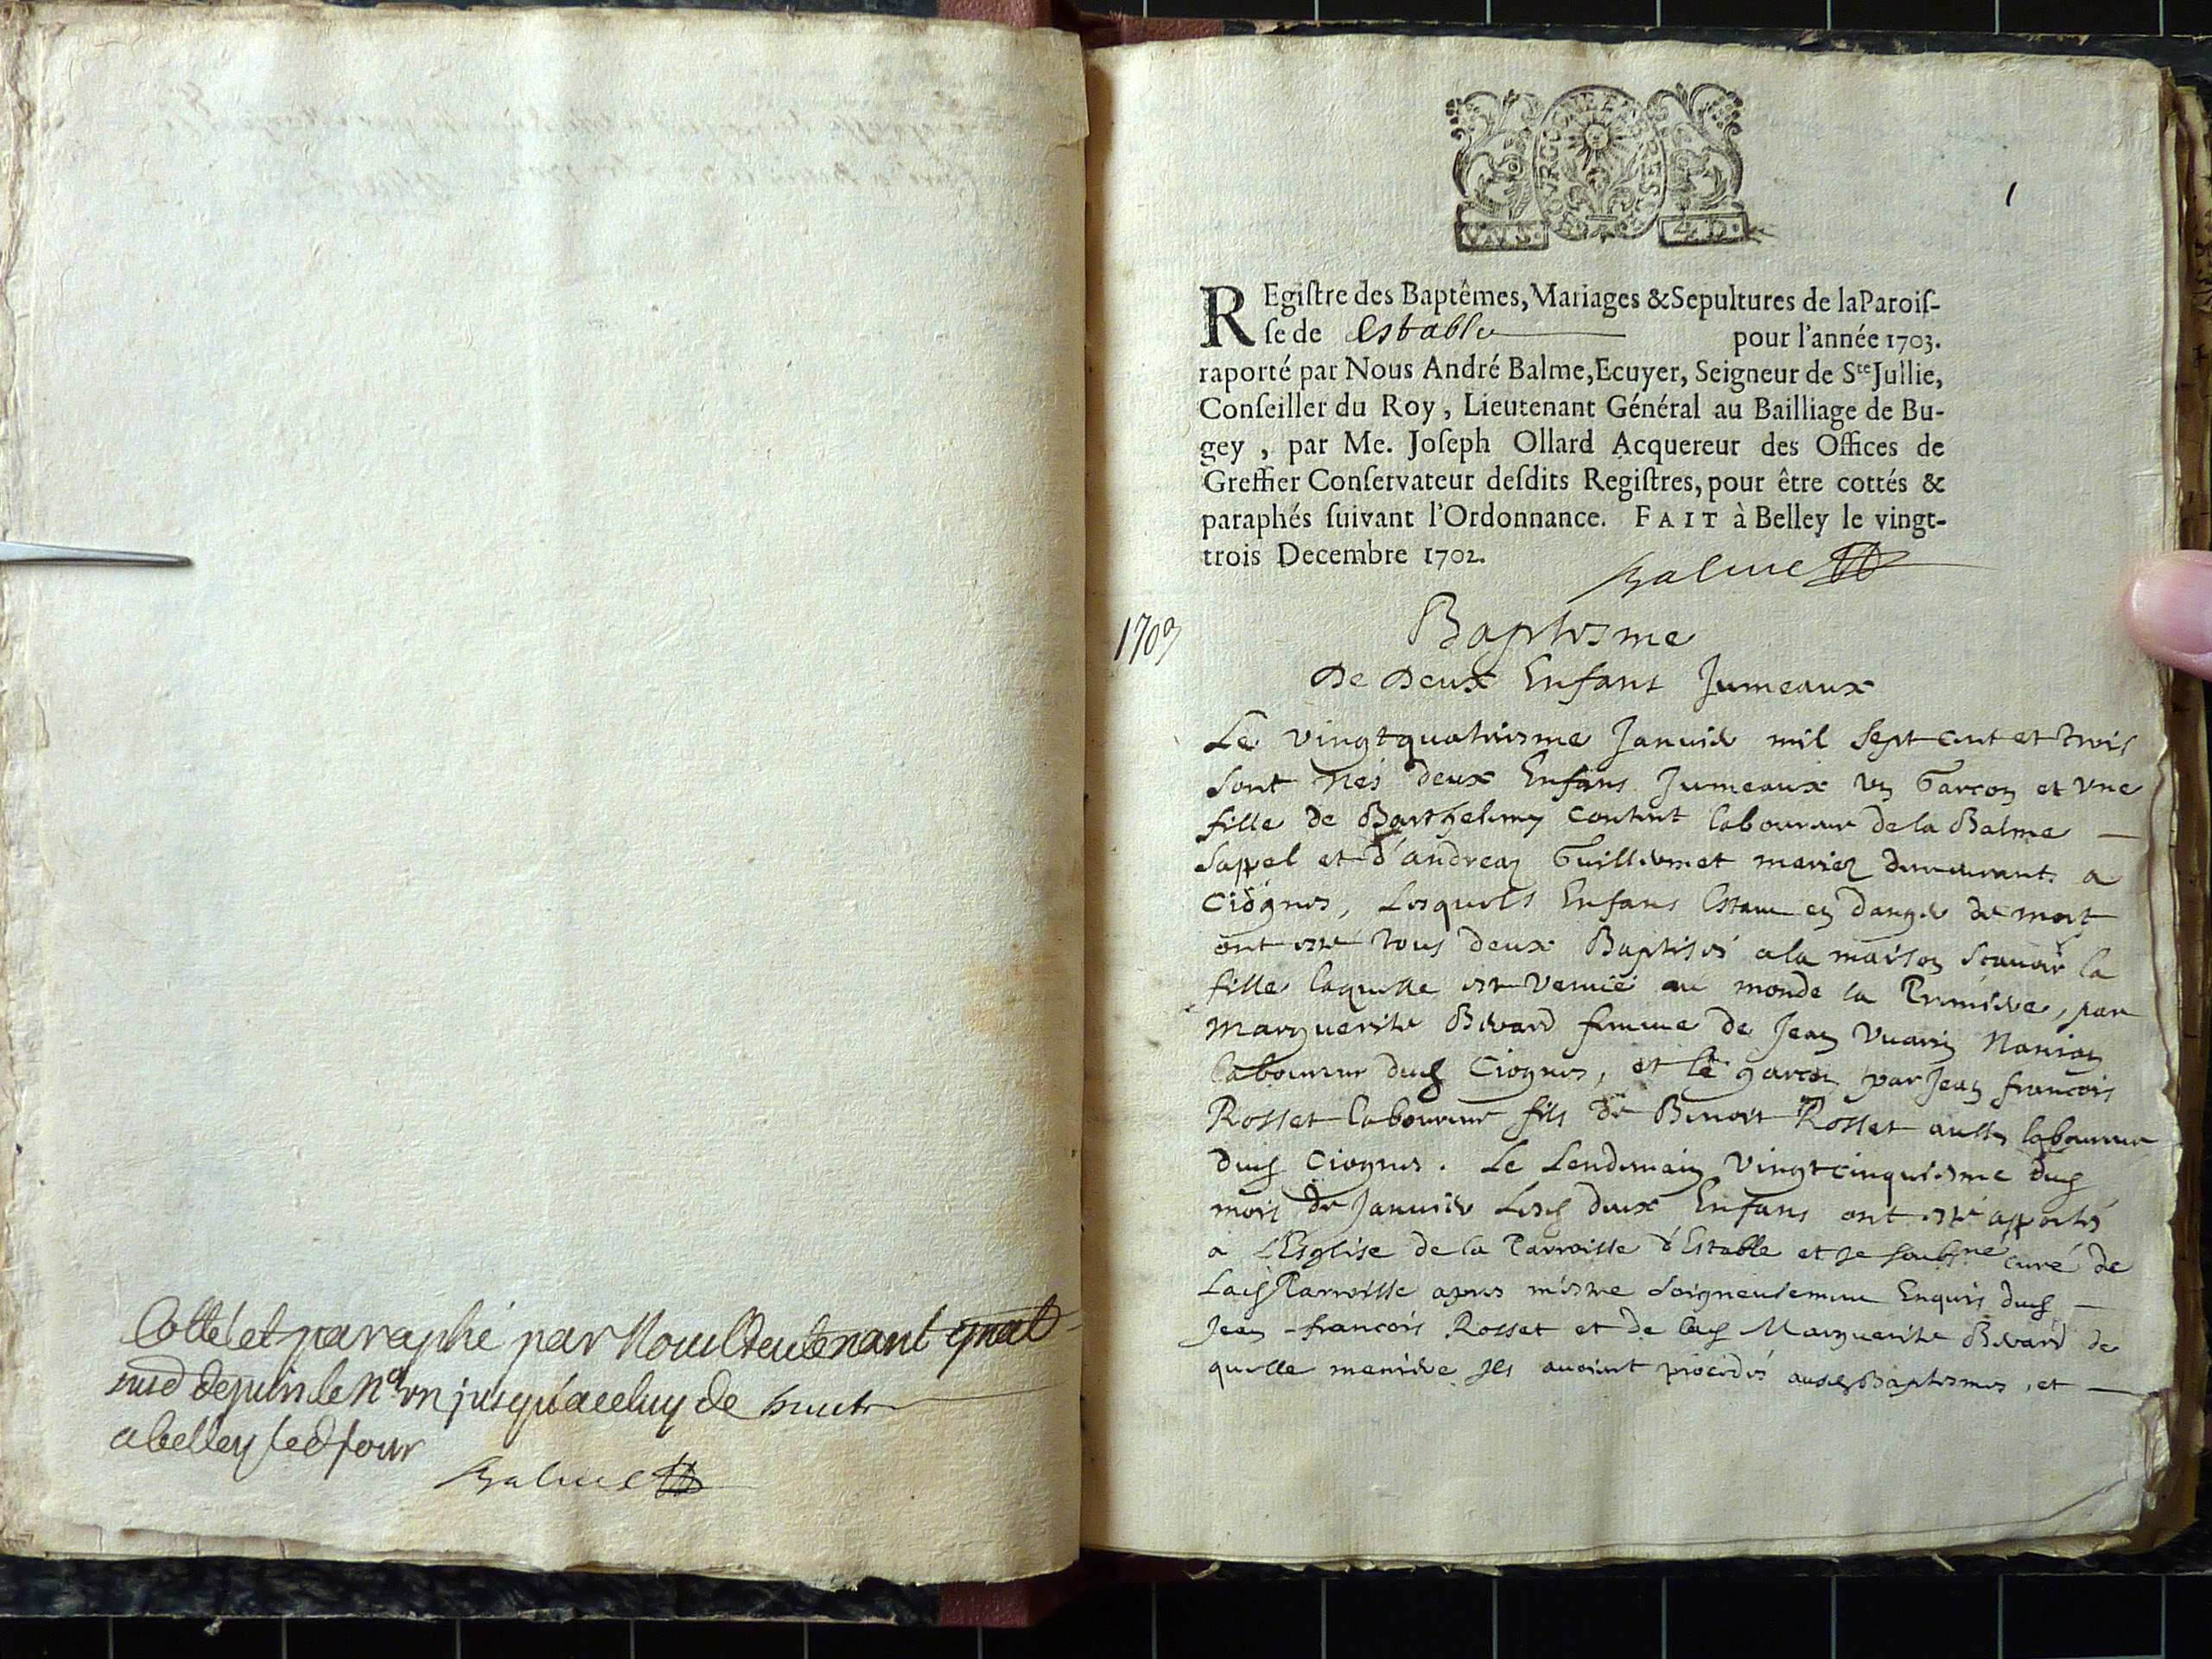 Cotté et paraphé par Nous Lieutenant gnal
susd depuis le No un jusqu'a celuy de huict
a belley led jour
Balme
1
BOURGOGNE ET BRESSE
REgiſtre des Baptêmes, Mariages & Sepultures de la Paroiſ-
ſe de Estable pour l'année 1703.
raporté par Nous André Balme, Ecuyer, Seigneur de Ste Jullie,
Conſeiller du Roy, Lieutenant Général au Bailliage de Bu-
gey, par Me. Joſeph Ollard Acquereur des Offices de
Greffier Conſervateur deſdits Regiſtres, pour être cottés &
paraphés ſuivant l'Ordonnance. FAIT à Belley le vingt-
trois Decembre 1702.
Balme
1703
Baptesme
De Deux Enfans Jumeaux
Le vingtquatriesme Janvier mil sept cent et trois
sont nés deux Enfans Jumeaux un Garcon et une
fille de Barthelemy Content laboureur de la Balme
Sappel et d'andrea Guillermet mariez demeurant a
Ciognes, Lesquels Enfans Estant en danger de mort
ont esté tous deux Baptisés a la maison scauoir la
fille laquelle est venue au monde la Premiere, par
Marguerite Bevard femme de Jean Vuarin
laboureur dud Ciognes, et le garcon par Jean francois
Rosset laboureur fils de Benoit Rosset aussy laboureur
dud Ciognes. Le Lendemain vingtcinquiesme dud
mois de Janvier Lesd deux Enfans ont esté apportés
a L'Esglise de la Parroisse d'Estable et Je soubsné curé de
Lad Parroisse apres m'estre soigneusement Enquis dud
Jean-francois Rosset et de lad Marguerite Bevard de
quelle maniere Ils auoient procedés ausd Baptesmes, et